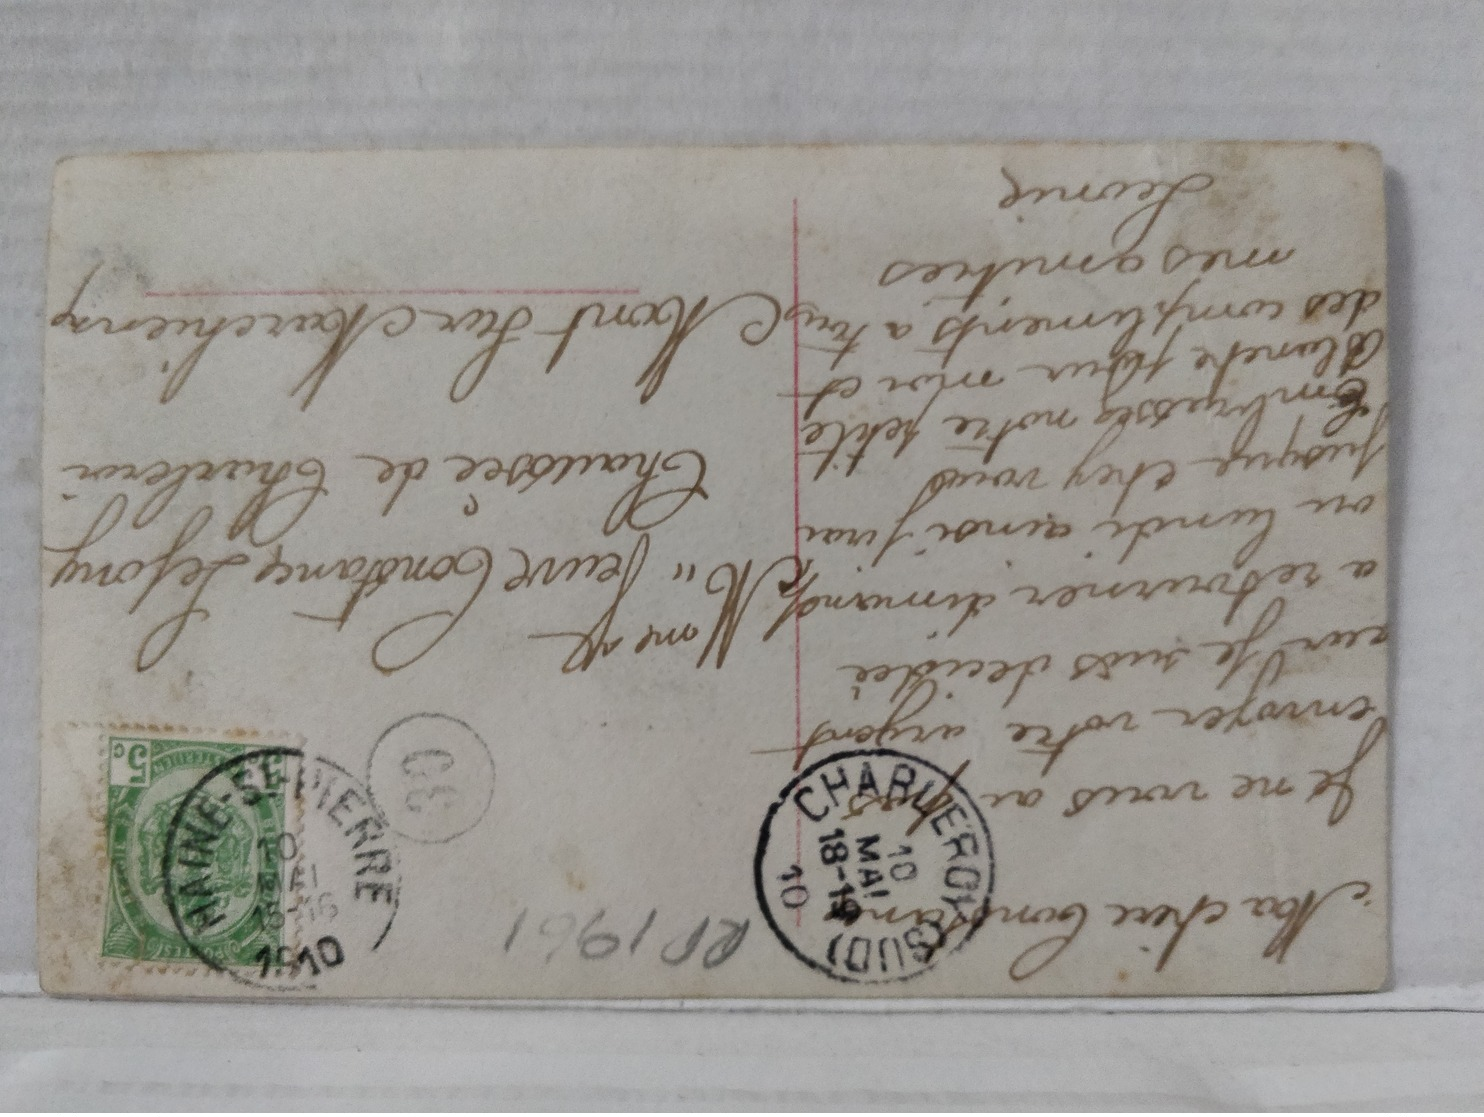 Ma chère Constance
Je ne vous ai pas
envoyer votre argent
car Je suis decidée
a retourner dimanche
ou lundi ainsi j'irai
jusque chez vous
Embrassée notre petite
Blanche pour moi et
des compliments a tous
mes amitiées
Leonie
RP 1961
CHARLEROY (SUD)
10
MAI
18-19
10
HAINE-ST-PIERRE
10
MAI
15-16
1910
5c
30
Mme
M" Veuve Constance Lejong
Chaussée de Charleroi
Mont sur Marchienne